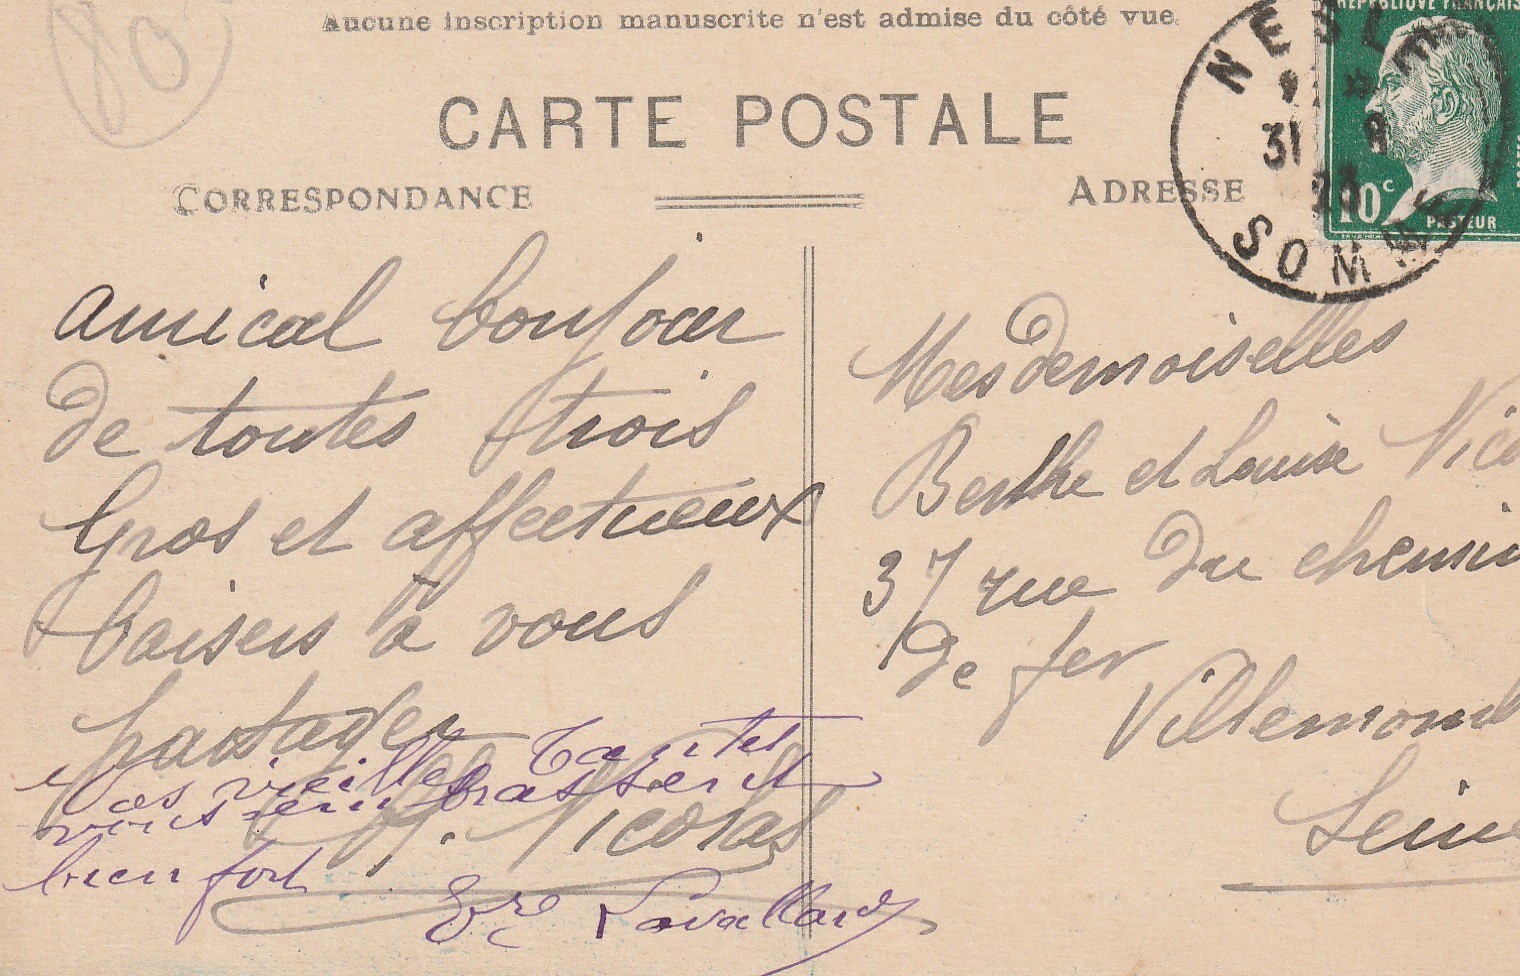 80
Aucune inscription manuscrite n'est admise du côté vue.
CARTE POSTALE
CORRESPONDANCE
ADRESSE
NESLE
31 8
SOMME
REPUBLIQUE FRANCAISE
10c
PASTEUR
amical bonjour
de toutes trois
Gros et affectueux
baisers à vous
partager
Nicolas
vos vieilles tantes
vous embrassent
bien fort
Lavallard
Mesdemoiselles
Berthe et Louise Nico
37 rue du chemin
de fer
Villemomb
Seine